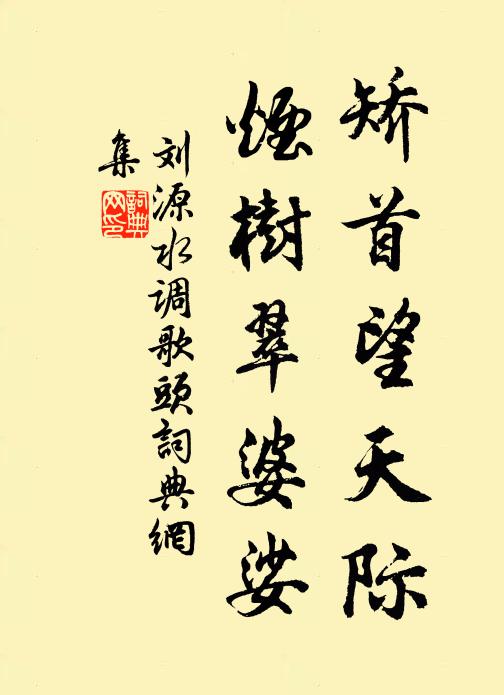 矫首望天际
煙樹翠婆娑
刘源水调歌頭詞典網
集
詞典网印